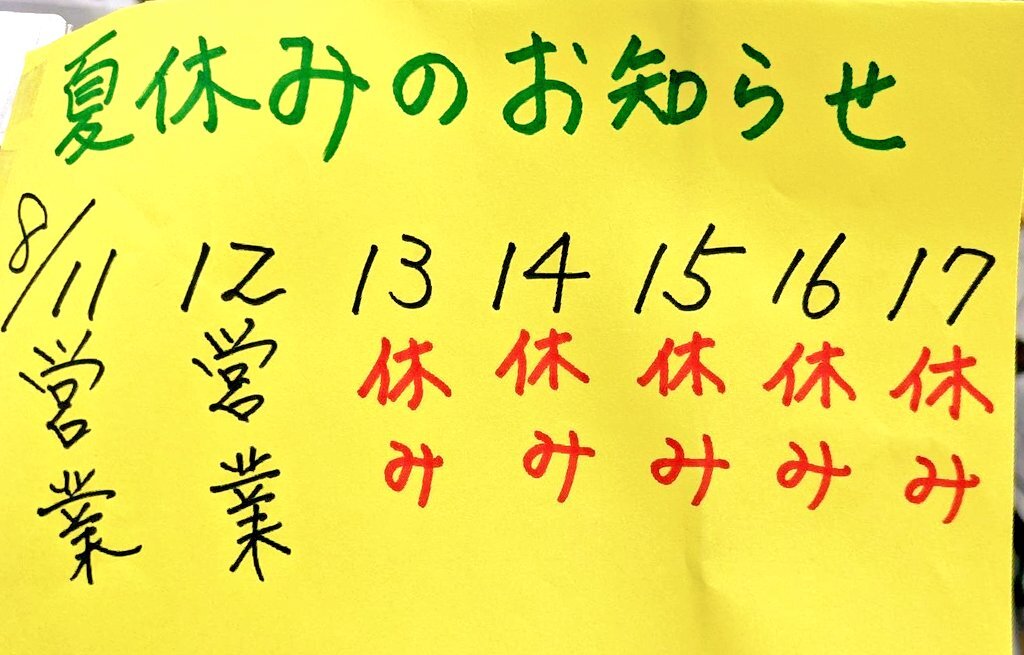 夏休みのお知らせ
8/11 12 13 14 15 16 17
営業 営業 休み 休み 休み 休み 休み